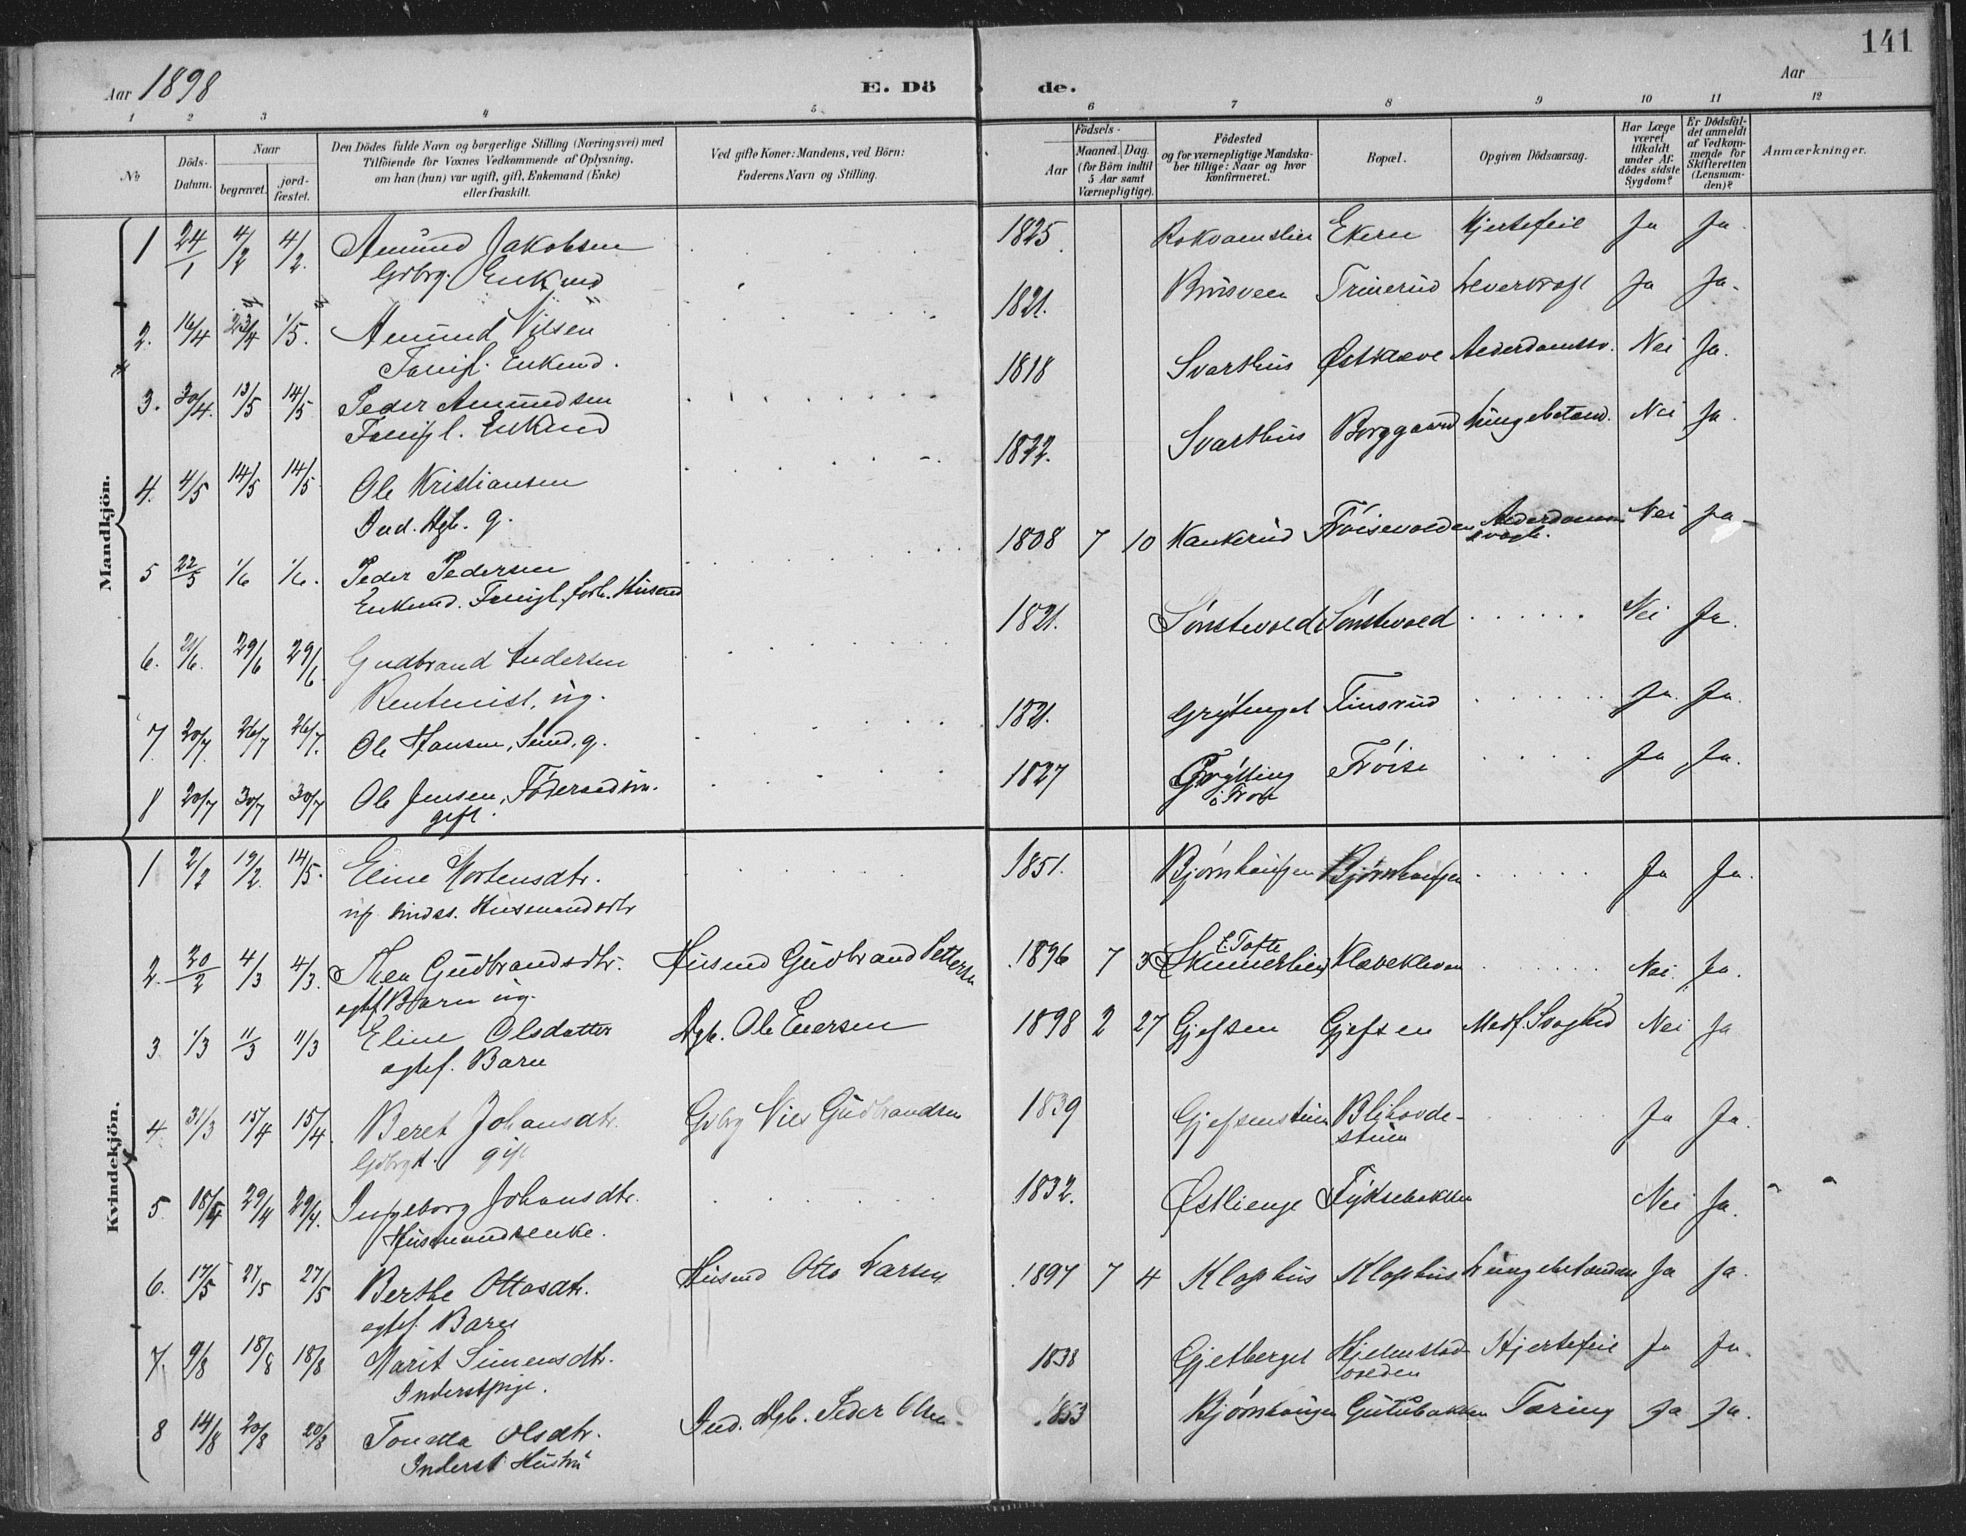 141
Aar 1898
E. Dö
de.
Aar
1 2 3 4 5 6 7 8 9 10 11 12
No
Döds-Datum.
Naar
begravet.
jord-fæstet.
Den Dödes fulde Navn og borgerlige Stilling (Næringsvei) med
Tilföiende for Voxnes Vedkommende af Oplysning,
om han (hun) var ugift, gift, Enkemand (Enke)
eller fraskilt.
Ved gifte Koner: Mandens, ved Börn:
Faderens Navn og Stilling.
Födsels-
Aar
Maaned. Dag.
(for Börn indtil
5 Aar samt
Værnepligtige).
Födested
og for værnepligtige Mandska-
ber tillige: Naar og hvor
konfirmeret.
Bopæl.
Opgiven Dödsaarsag.
Har Læge
været
tilkaldt
under Af-
dödes sidste
Sygdom?
Er Dödsfal-
det anmeldt
af Vedkom-
mende for
Skifteretten
(Lensman-
den)?
Anmærkninger.
Mandkjön.
1 24/1 4/2 4/2. Amund Jakobsen 1825 Rokvamslien Ekern Hjertefeil Ja Ja.
Gdbrg. Enkmd
2. 16/4 23/4 1/5. Amund Nilsen 1821. Brusveen Trinerud Leverkræft Ja Ja.
Fattigl. Enkmd.
3. 30/4. 13/5 14/5 Peder Amundsen 1818 Svarthus Østkleve Alderdomssv. Nei Ja.
Fattigl. Enkmd
4. 4/5 14/5 14/5. Ole Kristiansen 1822. Svarthus Borggaard Lungebetænd. Nei Ja.
Ind. Dgb. g.
5 22/5 1/6 1/6. Peder Pedersen 1808 7 10 Kankerud Frøisevolden Alderdoms Nei Ja
Enkmd. Fattigl. forh. Husmd svagh.
6. 21/6. 29/6 29/6 Gudbrand Andersen 1821. Sønstevold Sønstevold Nei Ja.
Rentenist, ug.
7. 20/7. 26/7 26/7. Ole Hansen, Smed, g. 1821. Grytinget Finsrud Ja. Ja.
8 20/7 30/7 30/7 Ole Jensen, Föderaadsm. 1827 Grytting Frøise Ja Ja.
gift. i Fron
Kvindekjön.
1 2/2 19/2. 14/5. Eline Mortensdtr. 1851. Bjørnhaugen Bjørnhaugen Ja Ja.
ug. sindss. Husmandsdtr
2. 20/2 4/3 4/3. Thea Gudbrandsdtr. Husmd Gudbrand Pettersen 1896 7 3 Skinnerlien Klæveklevem Nei Ja.
ægtef. Barn ug. E. Tofte
3 1/3 11/3 11/3 Eline Olsdatter Dgb. Ole Enersen 1898 2 27 Gjefsen Gjefsen Medf. Svaghed Nei Ja
ægtef. Barn
4 31/3 15/4 15/4. Beret Johansdtr. Gdbrg Nils Gudbrandsen 1839 Gjefsenstuen Blihovde- Ja Ja.
gift stuen
5. 18/4 29/4 29/4. Ingeborg Johansdtr. 1832. Østlienge Nei Ja.
Husmandsenke.
6. 17/5 27/5 27/5 Berthe Ottosdtr. Husmd Otto Larsen 1897 7 4 Klophus Klophus Lungebetændelse Ja Ja.
ægtef. Barn
7. 9/8 18/8 18/8 Marit Simensdtr. 1838 Gjetberget Hjelmstad- Hjertefeil Ja Ja.
Inderstpige. volden
8 14/8 20/8 20/8 Tonetta Olsdtr. Ind. Dgb. Peder Olsen 1853 Bjørnhaugen Gutubakken Tæring Ja Ja.
Inderst Hustru